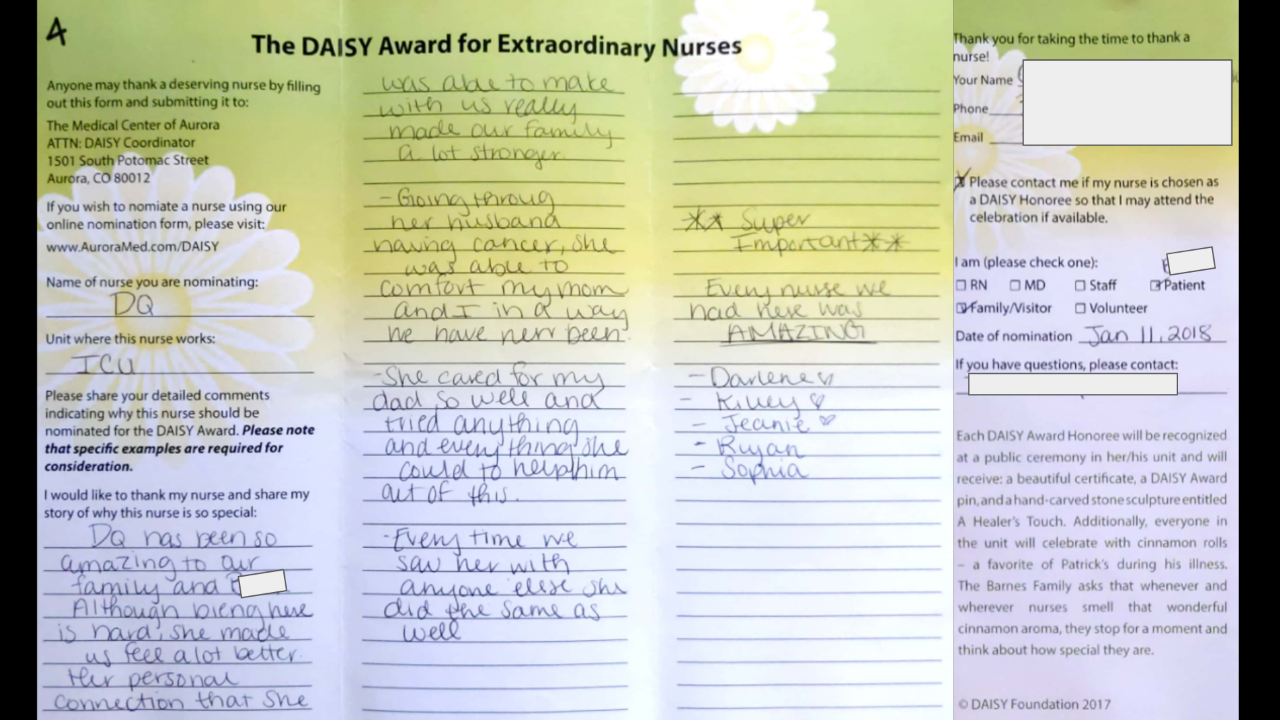 A
The DAISY Award for Extraordinary Nurses
Anyone may thank a deserving nurse by filling
out this form and submitting it to:
The Medical Center of Aurora
ATTN: DAISY Coordinator
1501 South Potomac Street
Aurora, CO 80012
If you wish to nomiate a nurse using our
online nomination form, please visit:
www.AuroraMed.com/DAISY
Name of nurse you are nominating:
DQ
Unit where this nurse works:
ICU
Please share your detailed comments
indicating why this nurse should be
nominated for the DAISY Award. Please note
that specific examples are required for
consideration.
I would like to thank my nurse and share my
story of why this nurse is so special:
DQ has been so
amazing to our
family and
Although bieng here
is hard, she made
us feel a lot better.
Her personal
connection that she
was able to make
with us really
made our family
a lot stronger.
- Going throug
her husband
having cancer, she
was able to
comfort my mom
and I in a way
we have nerr been.
- She cared for my
dad so well and
tried anything
and everything she
could to help him
out of this.
- Every time we
saw her with
anyone else she
did the same as
well
** Super
Important**
Every nurse we
had here was
AMAZING!
- Darlene ♡
- Kiley ♡
- Jeanie ♡
- Ryan
- Sophia
Thank you for taking the time to thank a
nurse!
Your Name
Phone
Email
Please contact me if my nurse is chosen as
a DAISY Honoree so that I may attend the
celebration if available.
I am (please check one):
RN MD Staff Patient
Family/Visitor Volunteer
Date of nomination Jan 11, 2018
If you have questions, please contact:
Each DAISY Award Honoree will be recognized
at a public ceremony in her/his unit and will
receive: a beautiful certificate, a DAISY Award
pin, and a hand-carved stone sculpture entitled
A Healer's Touch. Additionally, everyone in
the unit will celebrate with cinnamon rolls
– a favorite of Patrick's during his illness.
The Barnes Family asks that whenever and
wherever nurses smell that wonderful
cinnamon aroma, they stop for a moment and
think about how special they are.
© DAISY Foundation 2017